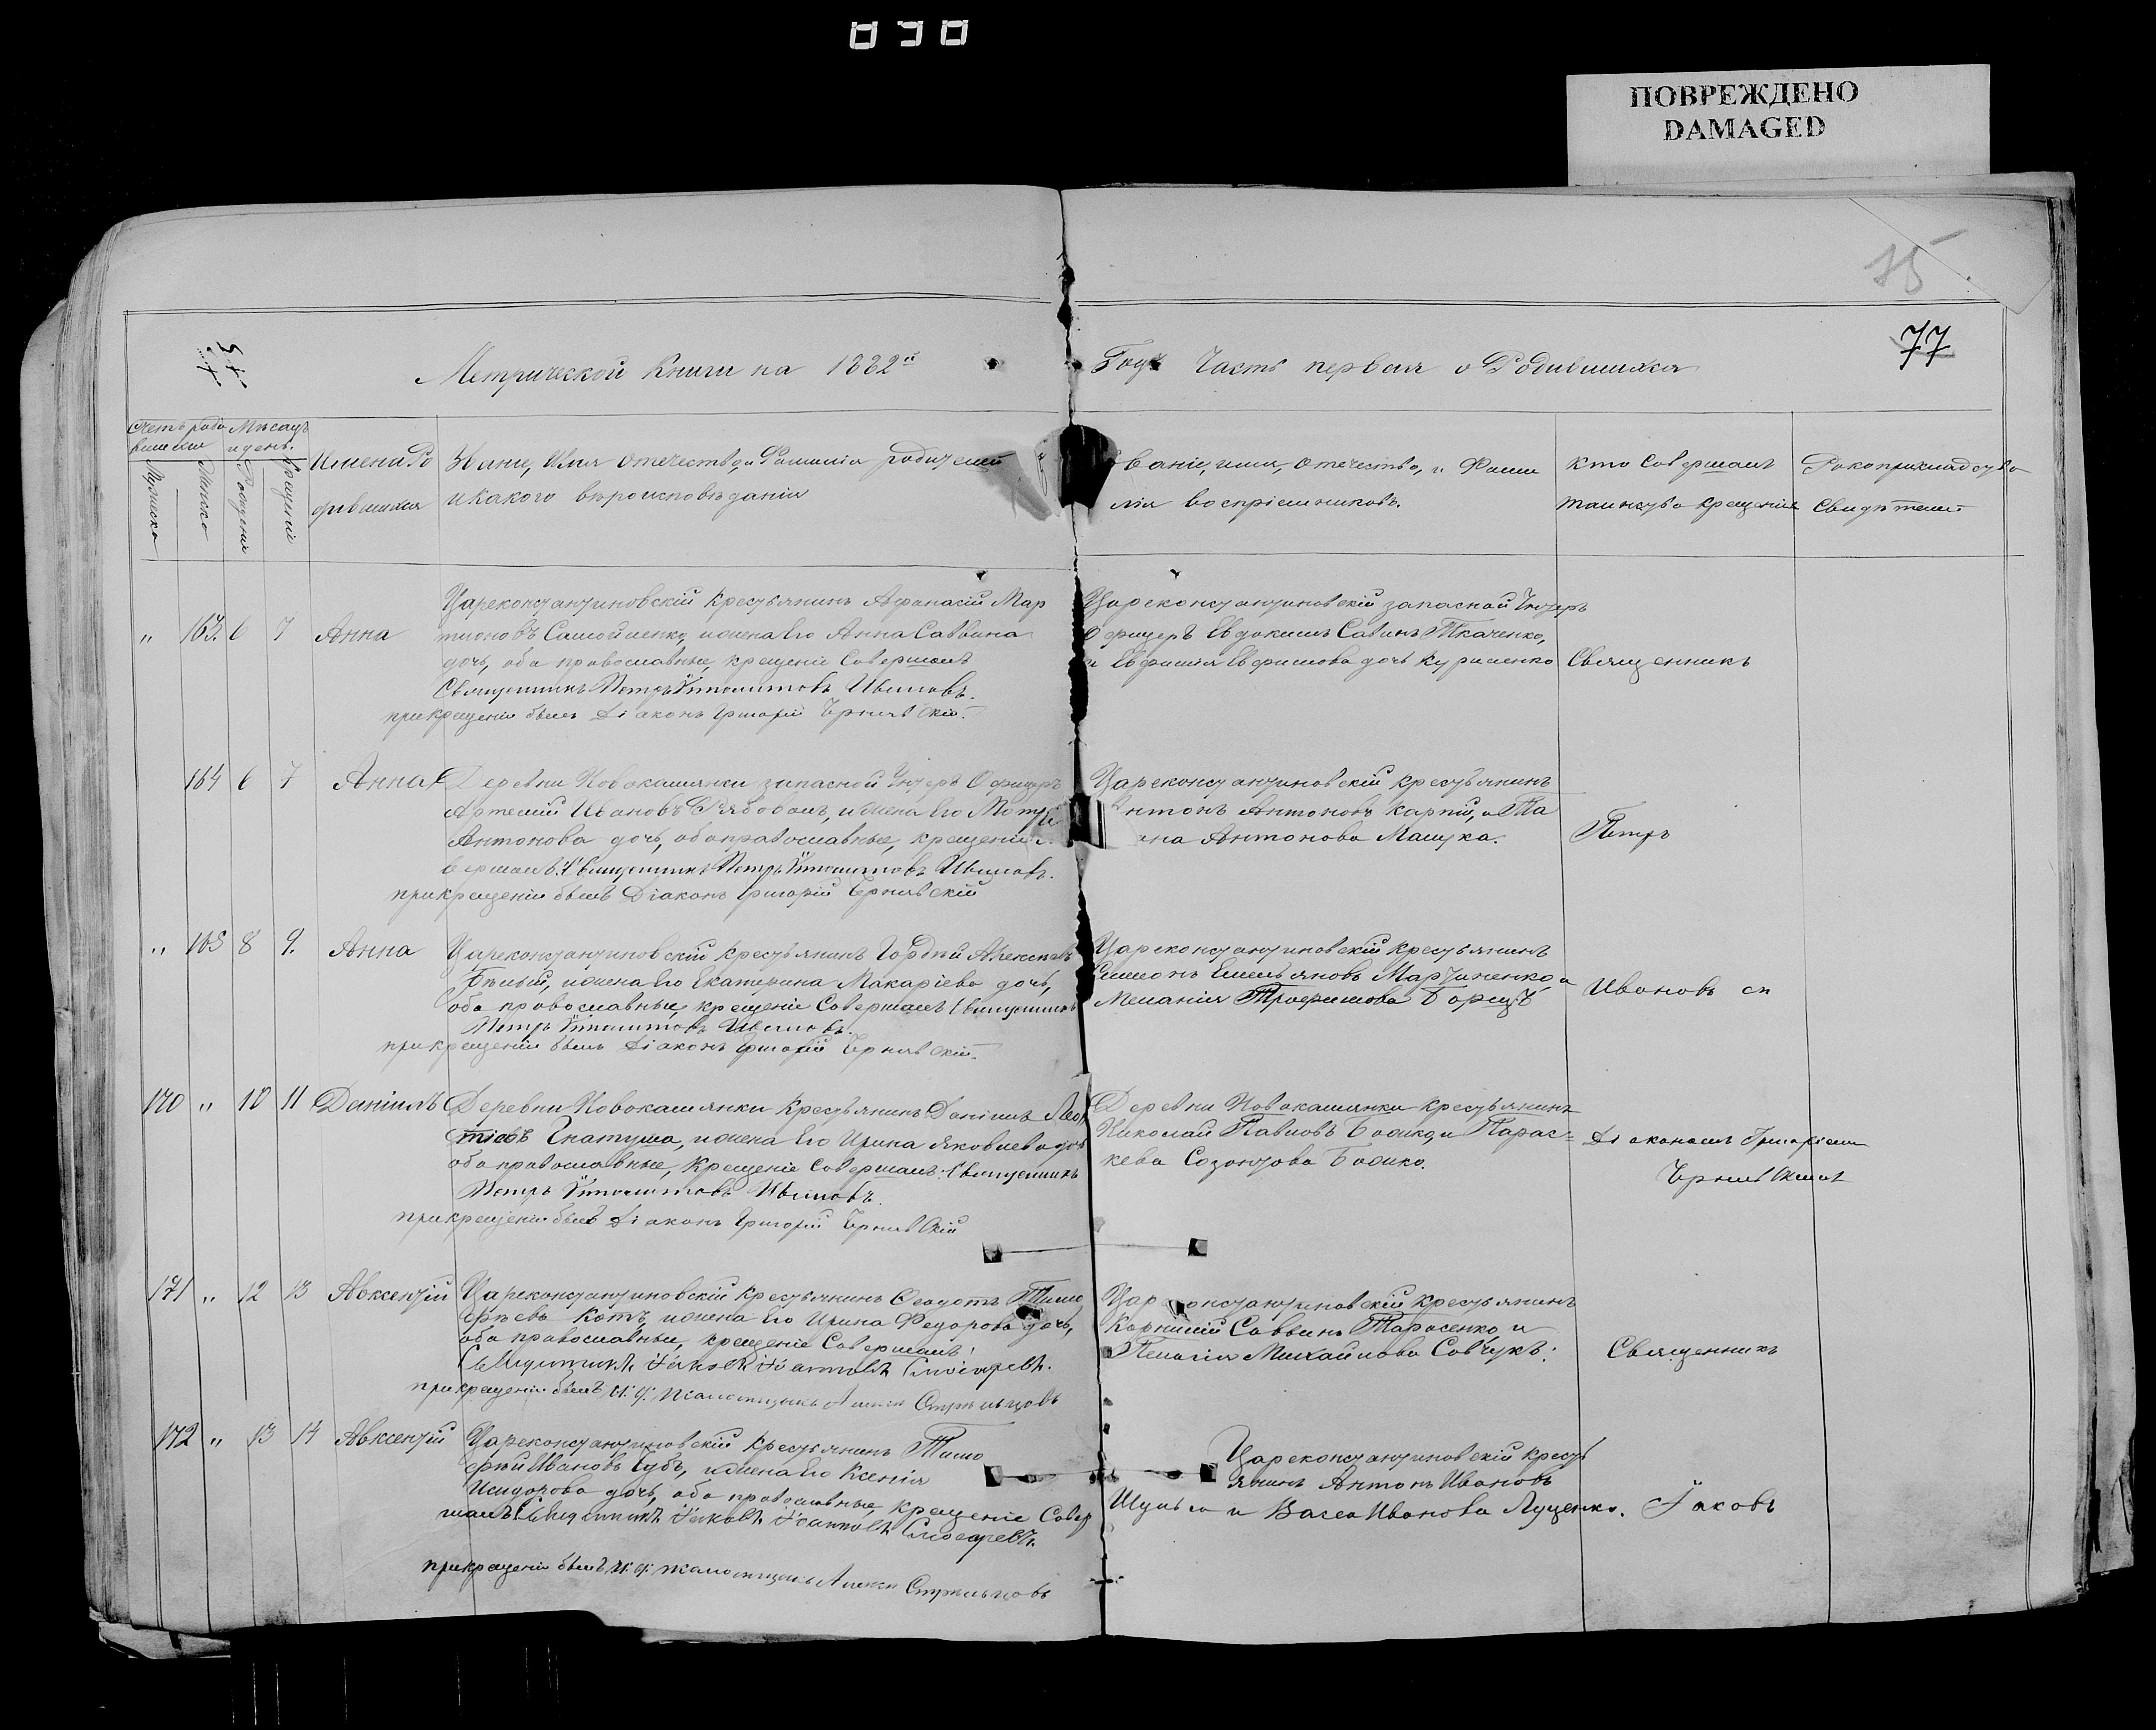 ПОВРЕЖДЕНО
DAMAGED
75
77
Метрической Книги на 1882й
Годъ Часть первая о Родившихся
Счетъ роди
вшихся
Мѣсяцъ
и день.
Мужеска
Женска
Рождения
Крещения
Имена Ро
дившихся
Звание, Имя отечество, и Фамилія родителей
и какого вѣроисповѣданія
Званіе, имя, отечество, и Фами
лія воспріемниковъ.
Кто совершалъ
таинство крещения
Рукоприкладство
Свидѣтелей
„ 163. 6 7 Анна
Цареконстантиновскій крестьянинъ Афанасій Мар
тионовъ Самойленко, и жена его Анна Саввина
дочь, оба православные, крещеніе Совершалъ
Священникъ Петръ Ивановъ.
при крещеніи былъ Діаконъ Григорій Чернявскій.
Цареконстантиновскій запасной Унтеръ
Офицеръ Евдокимъ Савинъ Ткаченко,
и Евфимія Евфимова дочь Куриленко
Священникъ
164 6 7 Анна
Деревни Новокамянки запасной Унтеръ Офицеръ
Артемій Ивановъ Рябоволъ, и жена его
Антонова дочь, оба православные, крещеніе
вершалъ Священникъ Петръ Ивановъ.
при крещеніи былъ Діаконъ Григорій Чернявскій
Цареконстантиновскій крестьянинъ
Антонъ Антоновъ Карпій, и Та
яна Антонова Машка.
Петръ
„ 165 8 9. Анна
Цареконстантиновскій крестьянинъ Гордѣй
Бѣлый, и жена его Екатерина Макаріева дочь,
оба православные, крещеніе Совершалъ Священникъ
Петръ Ивановъ.
при крещеніи былъ Діаконъ Григорій Чернявскій.
Цареконстантиновскій крестьянинъ
Симеонъ Емельяновъ Мартиненко, и
Меланія Трофимова Борщъ
Ивановъ съ
170 „ 10 11 Даніилъ
Деревни Новокамянки крестьянинъ Даніилъ Леон
тіевъ Гнатуша, и жена его Ирина Яковлева дочь
оба православные, Крещеніе совершалъ: Священникъ
Петръ Ивановъ.
при крещеніи былъ Діаконъ Григорій Чернявскій
Деревни Новокамянки крестьянинъ
Николай Павловъ Божко, и Парас=
кева Созонтова Божко.
Діакономъ Григоріемъ
Чернявскимъ
171 „ 12 13 Авксентій
Цареконстантиновскій крестьянинъ Феодотъ Тимо
фѣевъ Котъ, и жена его Ирина Федорова дочь,
оба православные, крещеніе Совершалъ:
Священникъ Іаковъ Слюсаревъ.
при крещеніи былъ и. д. псаломщика Стрѣльцовъ
Цареконстантиновскій крестьянинъ
Корнилій Саввинъ Тарасенко, и
Пелагія Михайлова Савчукъ.
Священникъ
172 „ 13 14 Авксентій
Цареконстантиновскій крестьянинъ Тимо
фѣй Ивановъ Губъ, и жена его Ксенія
Исидорова дочь, оба православные, Крещеніе Совер
шалъ Священникъ Іаковъ Слюсаревъ.
при крещеніи былъ и. д. псаломщика Стрѣльцовъ
Цареконстантиновскій кресть
янинъ Антонъ Ивановъ
Шульга и Васса Иванова Луценко.
Іаковъ